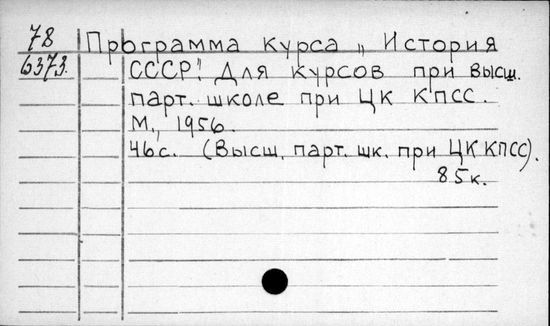 78 Программа курса „ История
6373. СССР". Для курсов при высш.
парт. школе при ЦК КПСС.
М., 1956.
46с. (Высш. парт. шк. при ЦК КПСС).
85к.